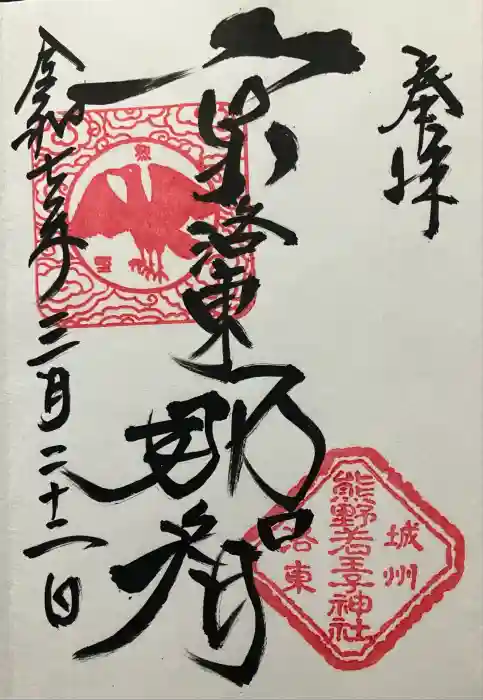 奉拝
京洛東那智
令和七年三月二十二日
熊
野
城州
熊野若王子神社
洛東